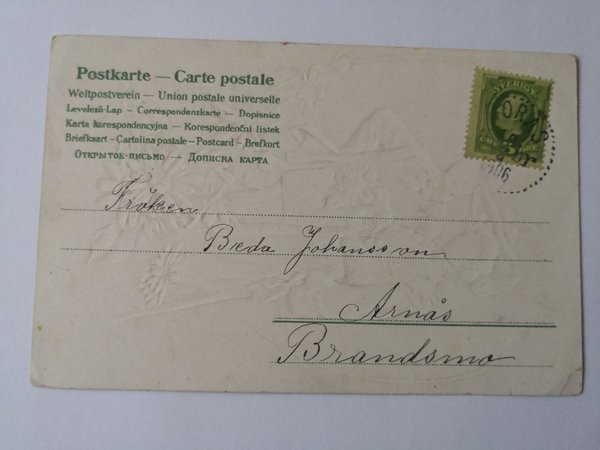 Postkarte — Carte postale
Weltpostverein — Union postale universelle
Levelező-Lap — Correspondenzkarte — Dopisnice
Karta korespondencyjna — Korespondenční lístek
Briefkaart — Cartolina postale — Postcard — Brefkort
Открытое-письмо — Дописна карта
SVERIGE
1906
Fröken
Beda Johansson
Arnäs
Brandsmo